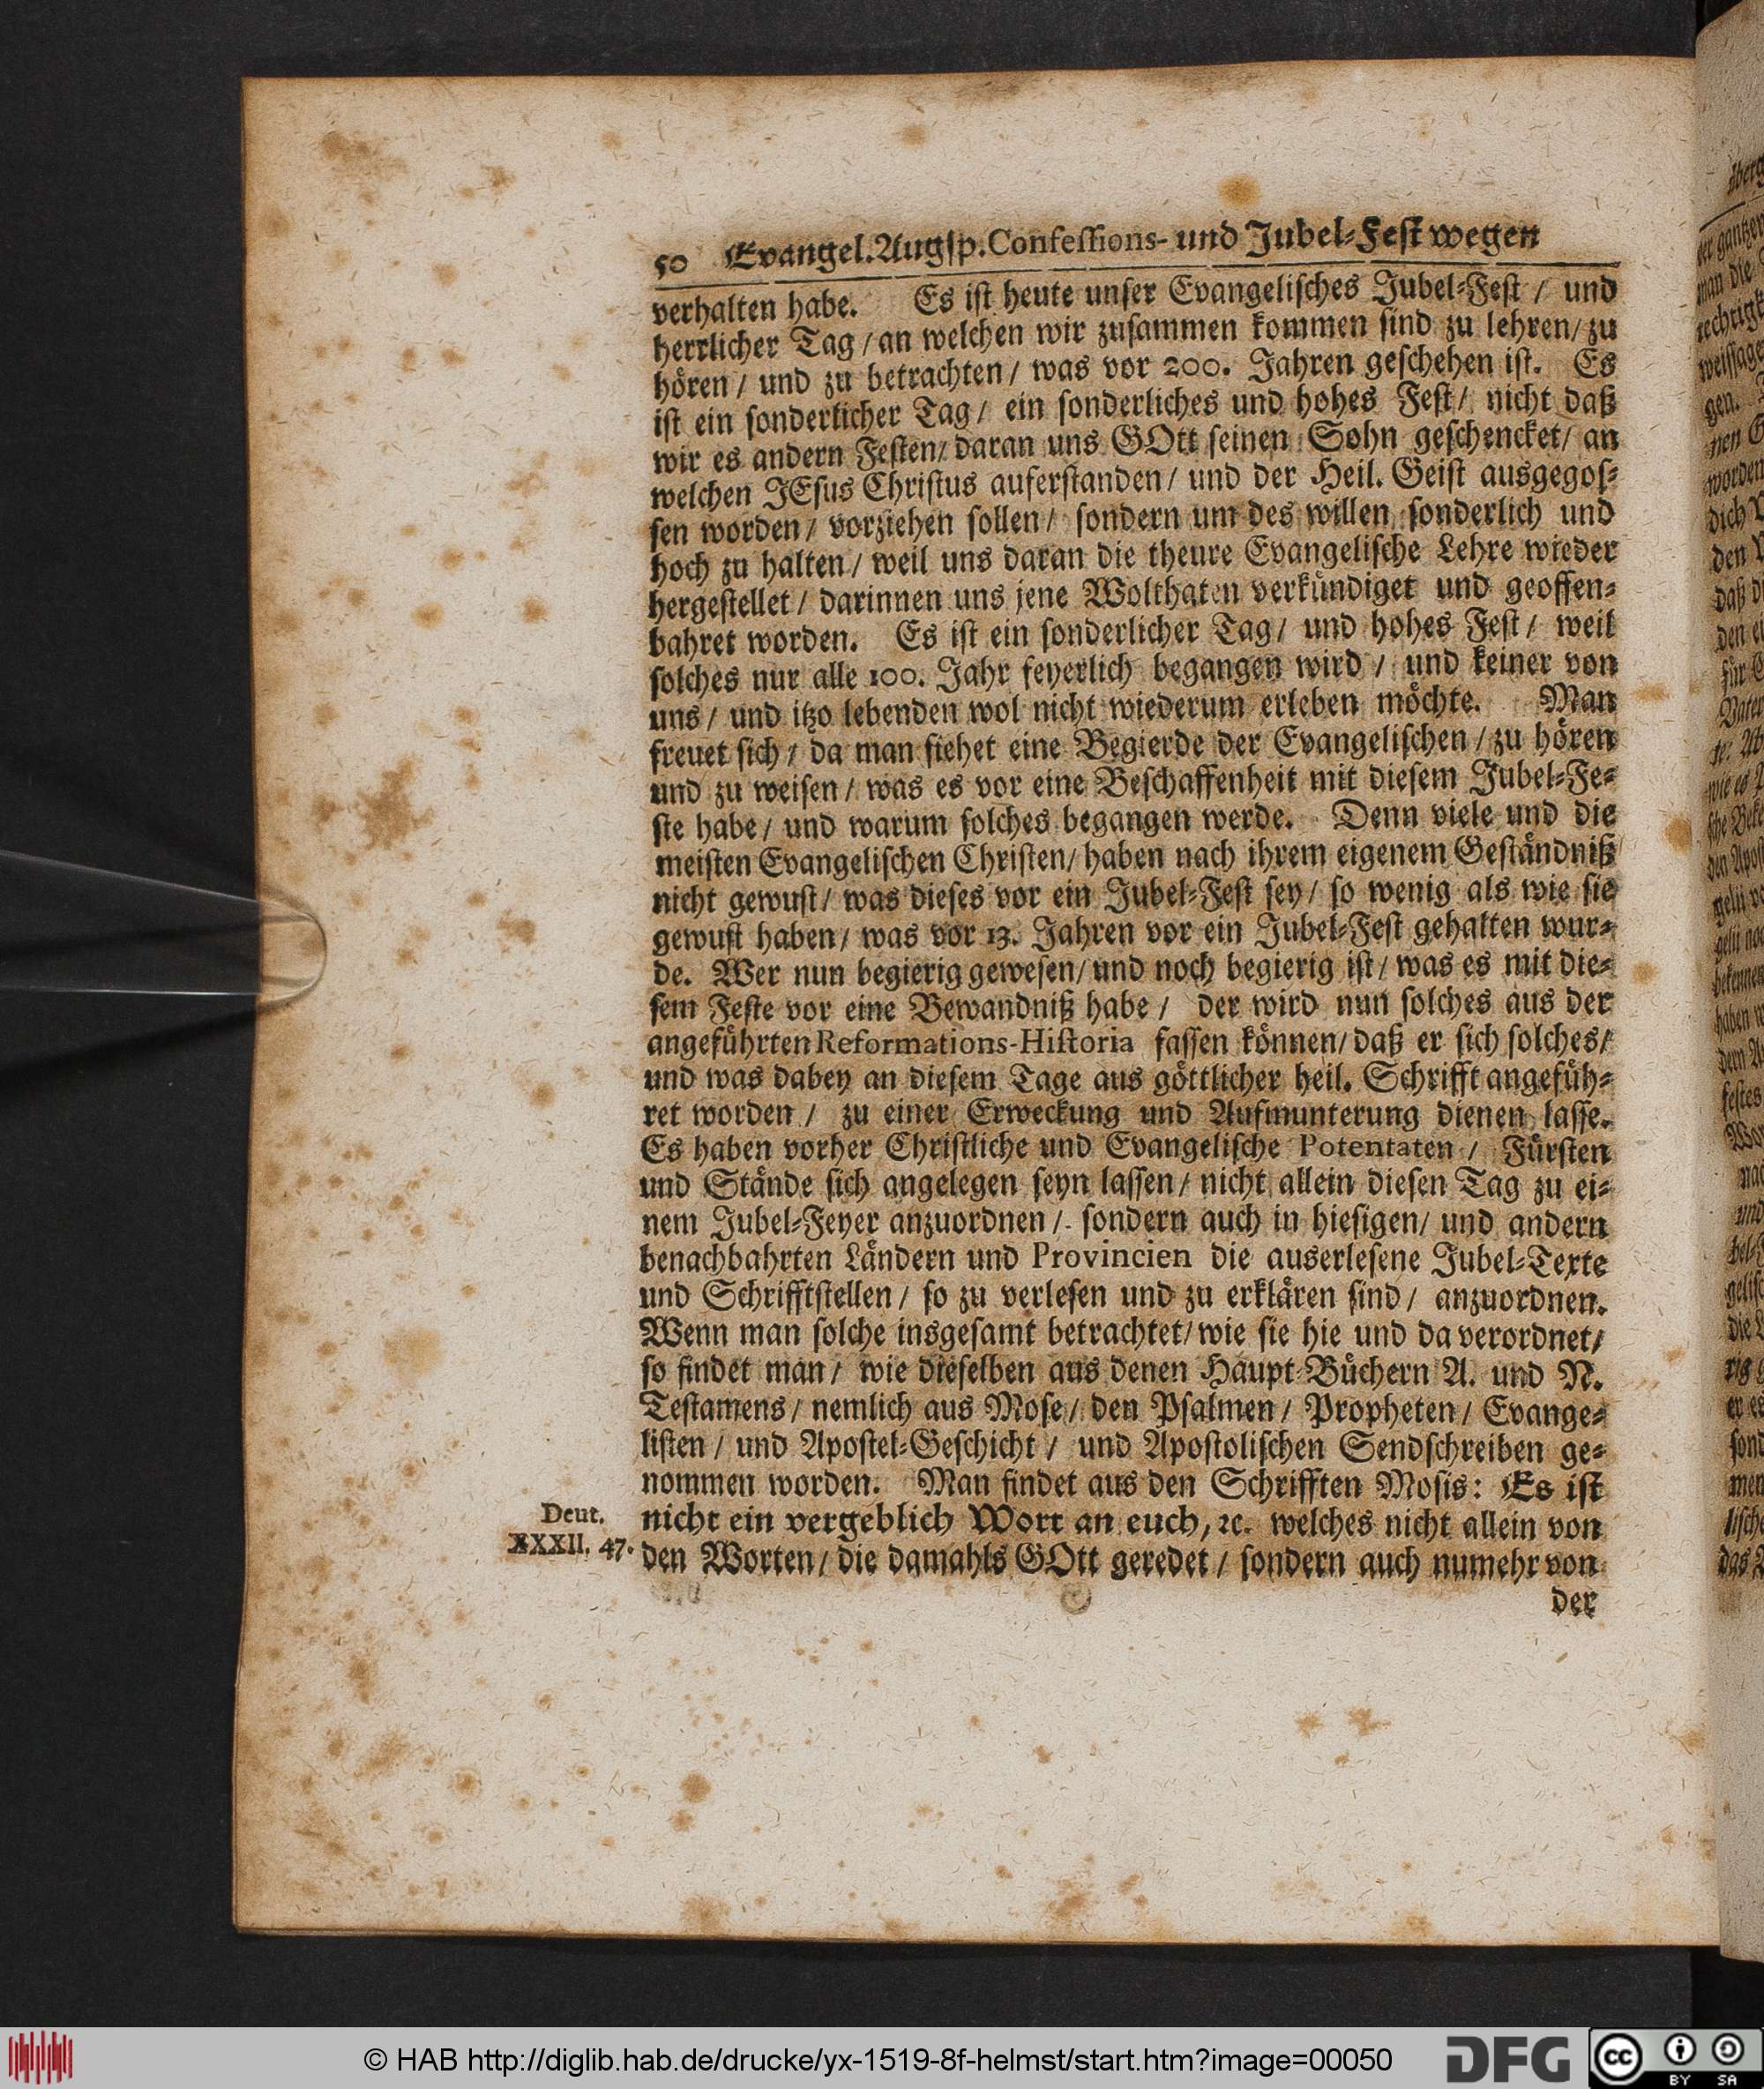 50 Evangel. Augsp. Confessions- und Jubel-Fest wegen
verhalten habe. Es ist heute unser Evangelisches Jubel-Fest / und
herrlicher Tag / an welchen wir zusammen kommen sind zu lehren / zu
hören / und zu betrachten / was vor 200. Jahren geschehen ist. Es
ist ein sonderlicher Tag / ein sonderliches und hohes Fest / nicht daß
wir es andern Festen / daran uns GOtt seinen Sohn geschencket / an
welchen JEsus Christus auferstanden / und der Heil. Geist ausgegos-
sen worden / vorziehen sollen / sondern um des willen sonderlich und
hoch zu halten / weil uns daran die theure Evangelische Lehre wieder
hergestellet / darinnen uns jene Wolthaten verkündiget und geoffen-
bahret worden. Es ist ein sonderlicher Tag / und hohes Fest / weil
solches nur alle 100. Jahr feyerlich begangen wird / und keiner von
uns / und itzo lebenden wol nicht wiederum erleben möchte. Man
freuet sich / da man siehet eine Begierde der Evangelischen / zu hören
und zu weisen / was es vor eine Beschaffenheit mit diesem Jubel-Fe-
ste habe / und warum solches begangen werde. Denn viele und die
meisten Evangelischen Christen / haben nach ihrem eigenem Geständniß
nicht gewust / was dieses vor ein Jubel-Fest sey / so wenig als wie sie
gewust haben / was vor 13. Jahren vor ein Jubel-Fest gehalten wur-
de. Wer nun begierig gewesen / und noch begierig ist / was es mit die-
sem Feste vor eine Bewandniß habe / der wird nun solches aus der
angeführten Reformations-Historia fassen können / daß er sich solches /
und was dabey an diesem Tage aus göttlicher heil. Schrifft angefüh-
ret worden / zu einer Erweckung und Aufmunterung dienen lasse.
Es haben vorher Christliche und Evangelische Potentaten / Fürsten
und Stände sich angelegen seyn lassen / nicht allein diesen Tag zu ei-
nem Jubel-Feyer anzuordnen / sondern auch in hiesigen / und andern
benachbahrten Ländern und Provincien die auserlesene Jubel-Texte
und Schrifftstellen / so zu verlesen und zu erklären sind / anzuordnen.
Wenn man solche insgesamt betrachtet / wie sie hie und da verordnet /
so findet man / wie dieselben aus denen Haupt-Büchern A. und N.
Testamens / nemlich aus Mose / den Psalmen / Propheten / Evange-
listen / und Apostel-Geschicht / und Apostolischen Sendschreiben ge-
nommen worden. Man findet aus den Schrifften Mosis: Es ist
Deut. XXXII. 47.
nicht ein vergeblich Wort an euch, ꝛc. welches nicht allein von
den Worten / die damahls GOtt geredet / sondern auch numehr von
der
© HAB http://diglib.hab.de/drucke/yx-1519-8f-helmst/start.htm?image=00050
DFG
cc BY SA